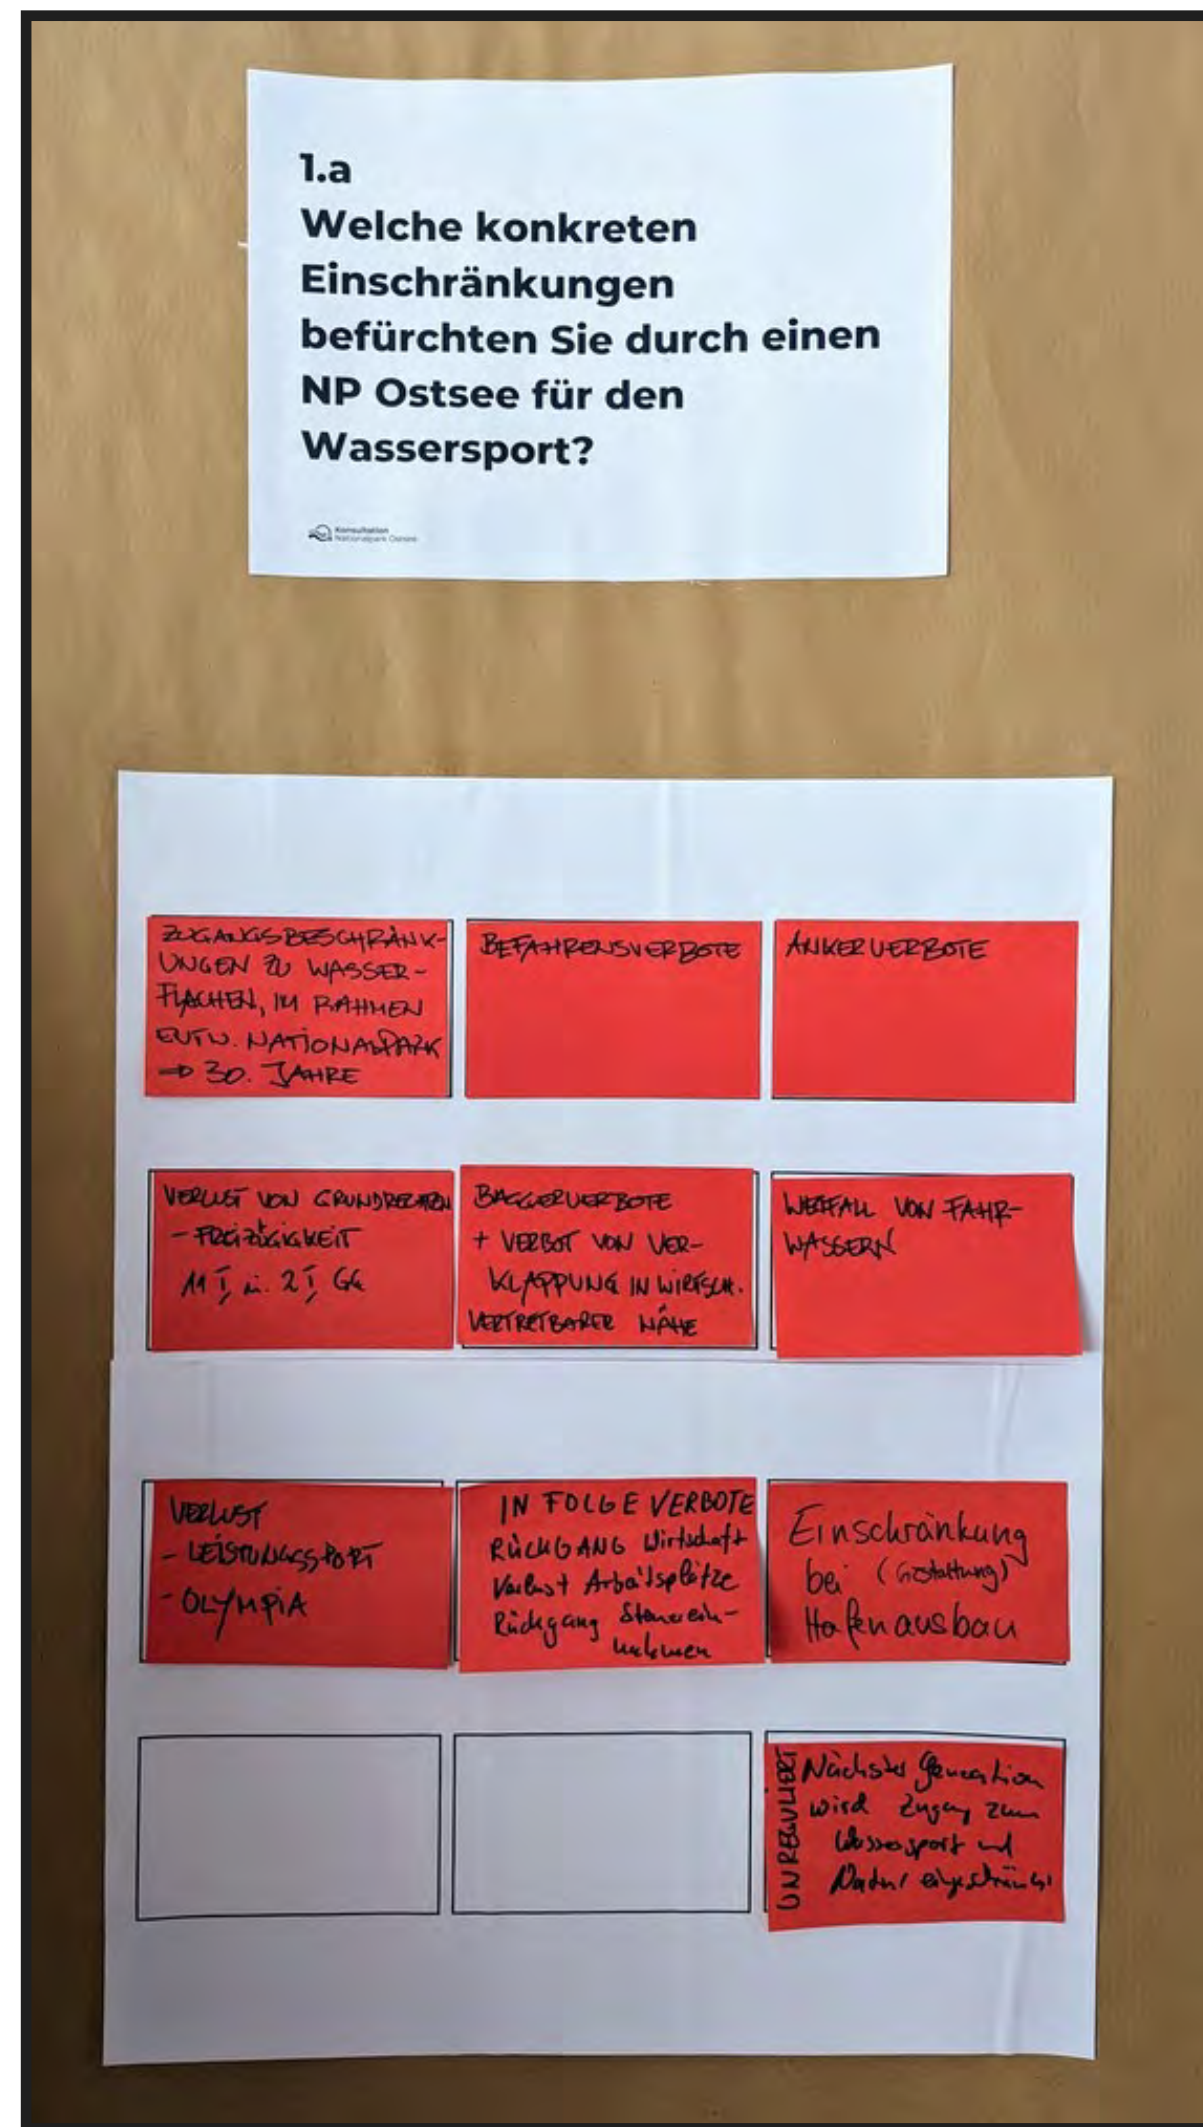 1.a
Welche konkreten
Einschränkungen
befürchten Sie durch einen
NP Ostsee für den
Wassersport?
Konsultation
Nationalpark Ostsee
ZUGANGSBESCHRÄNK-
UNGEN ZU WASSER-
FLÄCHEN, IM RAHMEN
ENTW. NATIONALPARK
⇒ 30. JAHRE
BEFAHRENSVERBOTE
ANKERVERBOTE
VERLUST VON GRUNDRECHTEN
- FREIZÜGIGKEIT
11 I, 2 I, GG
BAGGERVERBOTE
+ VERBOT VON VER-
KLAPPUNG IN WIRTSCH.
VERTRETBARER NÄHE
WEGFALL VON FAHR-
WASSERN
VERLUST
- LEISTUNGSSPORT
- OLYMPIA
IN FOLGE VERBOTE
RÜCKGANG Wirtschaft
Verlust Arbeitsplätze
Rückgang Steuerein-
nahmen
Einschränkung
bei (Gestattung)
Hafenausbau
UNREGULIERT
Nächster Generation
wird Zugang zum
Wassersport und
Natur eingeschränkt